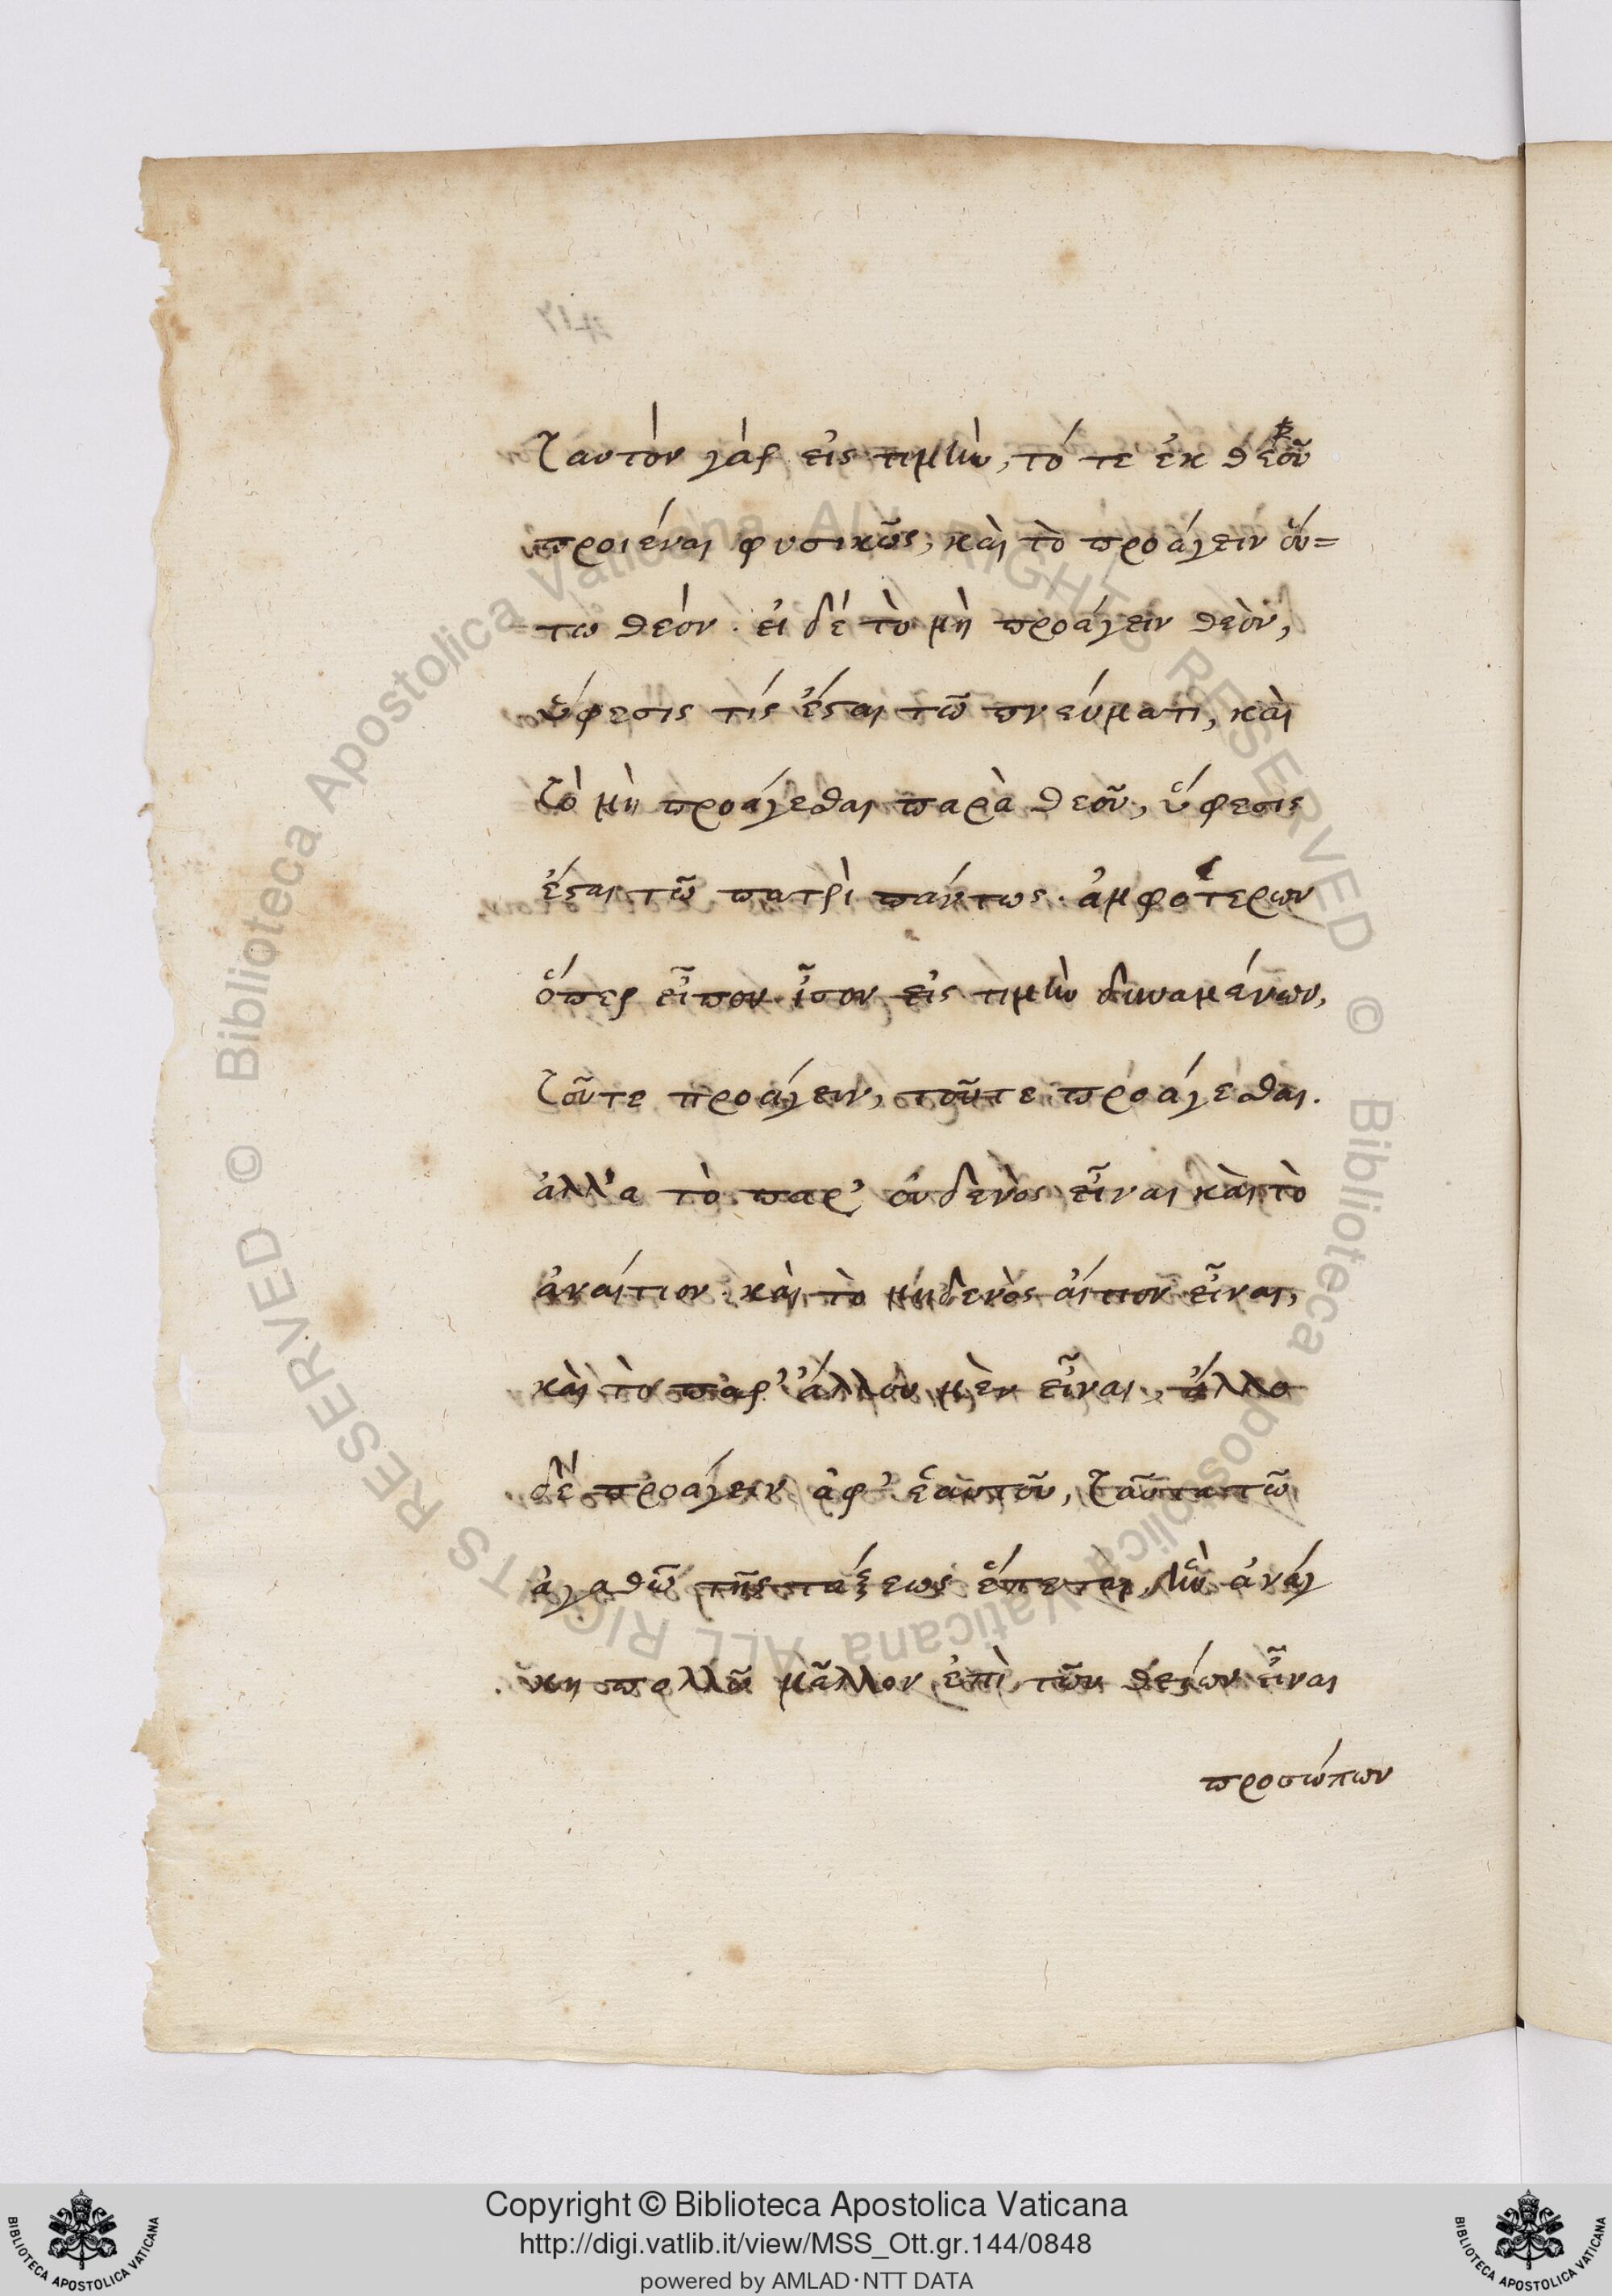 ταυτὸν γάρ εἰς τιμὴν, τό τε ἐκ θεοῦ
προιέναι φυσικῶς, καὶ τὸ προάγειν οὕ=
τω θεόν. εἰ δέ τὸ μὴ προάγειν θεὸν,
ὕφεσις τίς ἔσται τῶ πνεύματι, καὶ
τὸ μὴ προάγεσθαι παρὰ θεοῦ, ὕφεσις
ἔσται τῶ πατρὶ πάντως. ἀμφοτέρων
ὅπερ εἶπον ἶσον εἰς τιμὴν δυναμένων,
τοῦτε προάγειν, τοῦτε προάγεσθαι.
ἀλλ'α τὸ παρ' οὐδενὸς εἶναι καὶ τὸ
ἀναίτιον καὶ τὸ μηδενὸς αἴτιον εἶναι,
καὶ τὸ παρ' ἄλλου μὲν εἶναι, ἄλλο
δὲ προάγειν ἀφ' ἑαυτοῦ, ταῦτα τῶ
ἀγαθῶ τῆς τάξεως ἕπεται, ἣν ἀνάγ
κη πολλῶ μᾶλλον ἐπὶ τῶν θείων εἶναι
προσώπων
Copyright © Biblioteca Apostolica Vaticana
http://digi.vatlib.it/view/MSS_Ott.gr.144/0848
powered by AMLAD·NTT DATA
BIBLIOTECA APOSTOLICA VATICANA
BIBLIOTECA APOSTOLICA VATICANA
© Biblioteca Apostolica Vaticana ALL RIGHTS RESERVED
© Biblioteca Apostolica Vaticana ALL RIGHTS RESERVED